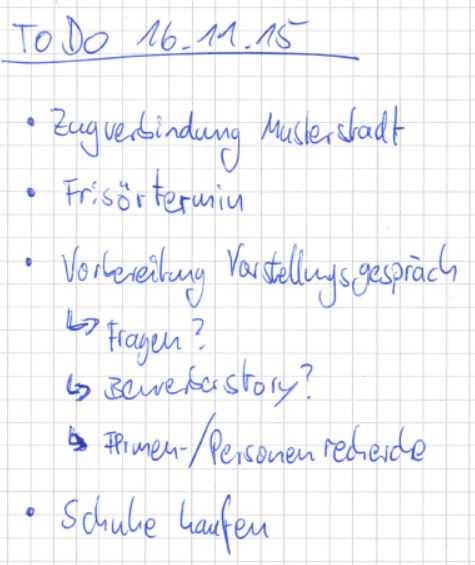 To Do 16.11.15
• Zugverbindung Musterstadt
• Frisörtermin
• Vorbereitung Vorstellungsgespräch
↳ Fragen?
↳ Bewerberstory?
↳ Firmen-/Personenrecherche
• Schuhe kaufen